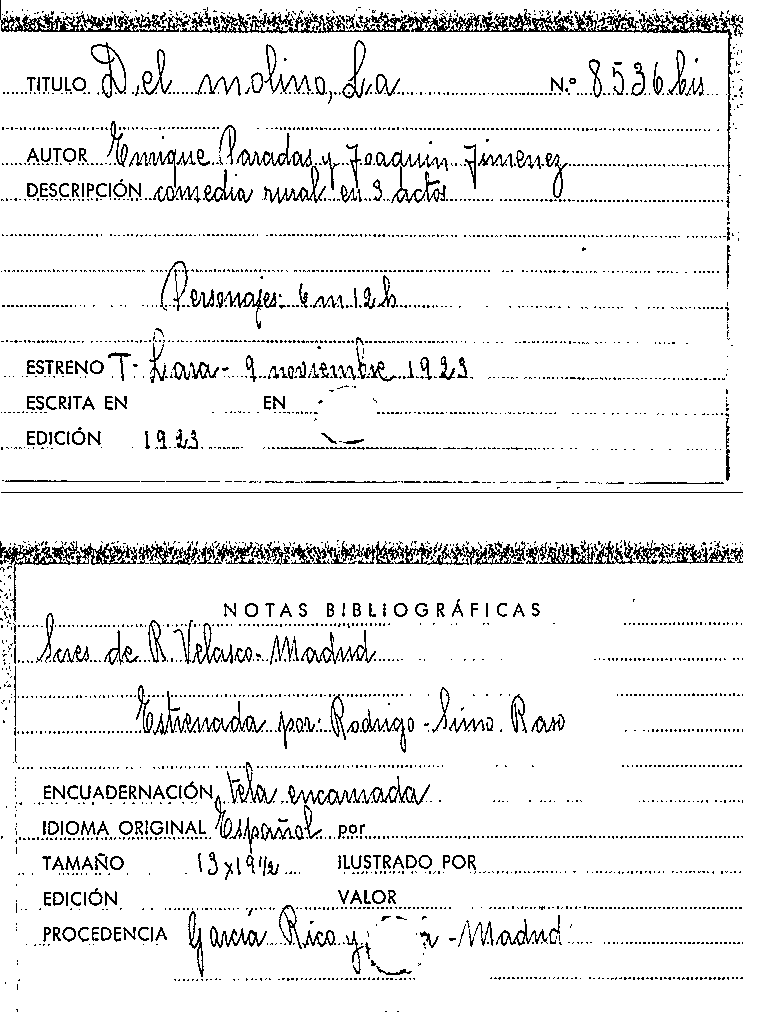 TITULO Del molino, La N.º 8536 bis
AUTOR Enrique Paradas y Joaquin Jimenez
DESCRIPCIÓN comedia rural en 3 actos
Personajes: 6 m 12 h
ESTRENO T. Lara - 9 noviembre 1923
ESCRITA EN EN
EDICIÓN 1923
NOTAS BIBLIOGRÁFICAS
Sucs de R. Velasco - Madrid
Estrenada por: Rodrigo - Simo. Raso
ENCUADERNACIÓN tela encarnada
IDIOMA ORIGINAL Español por
TAMAÑO 13 x 19 1/2 ILUSTRADO POR
EDICIÓN VALOR
PROCEDENCIA García Rico y - Madrid